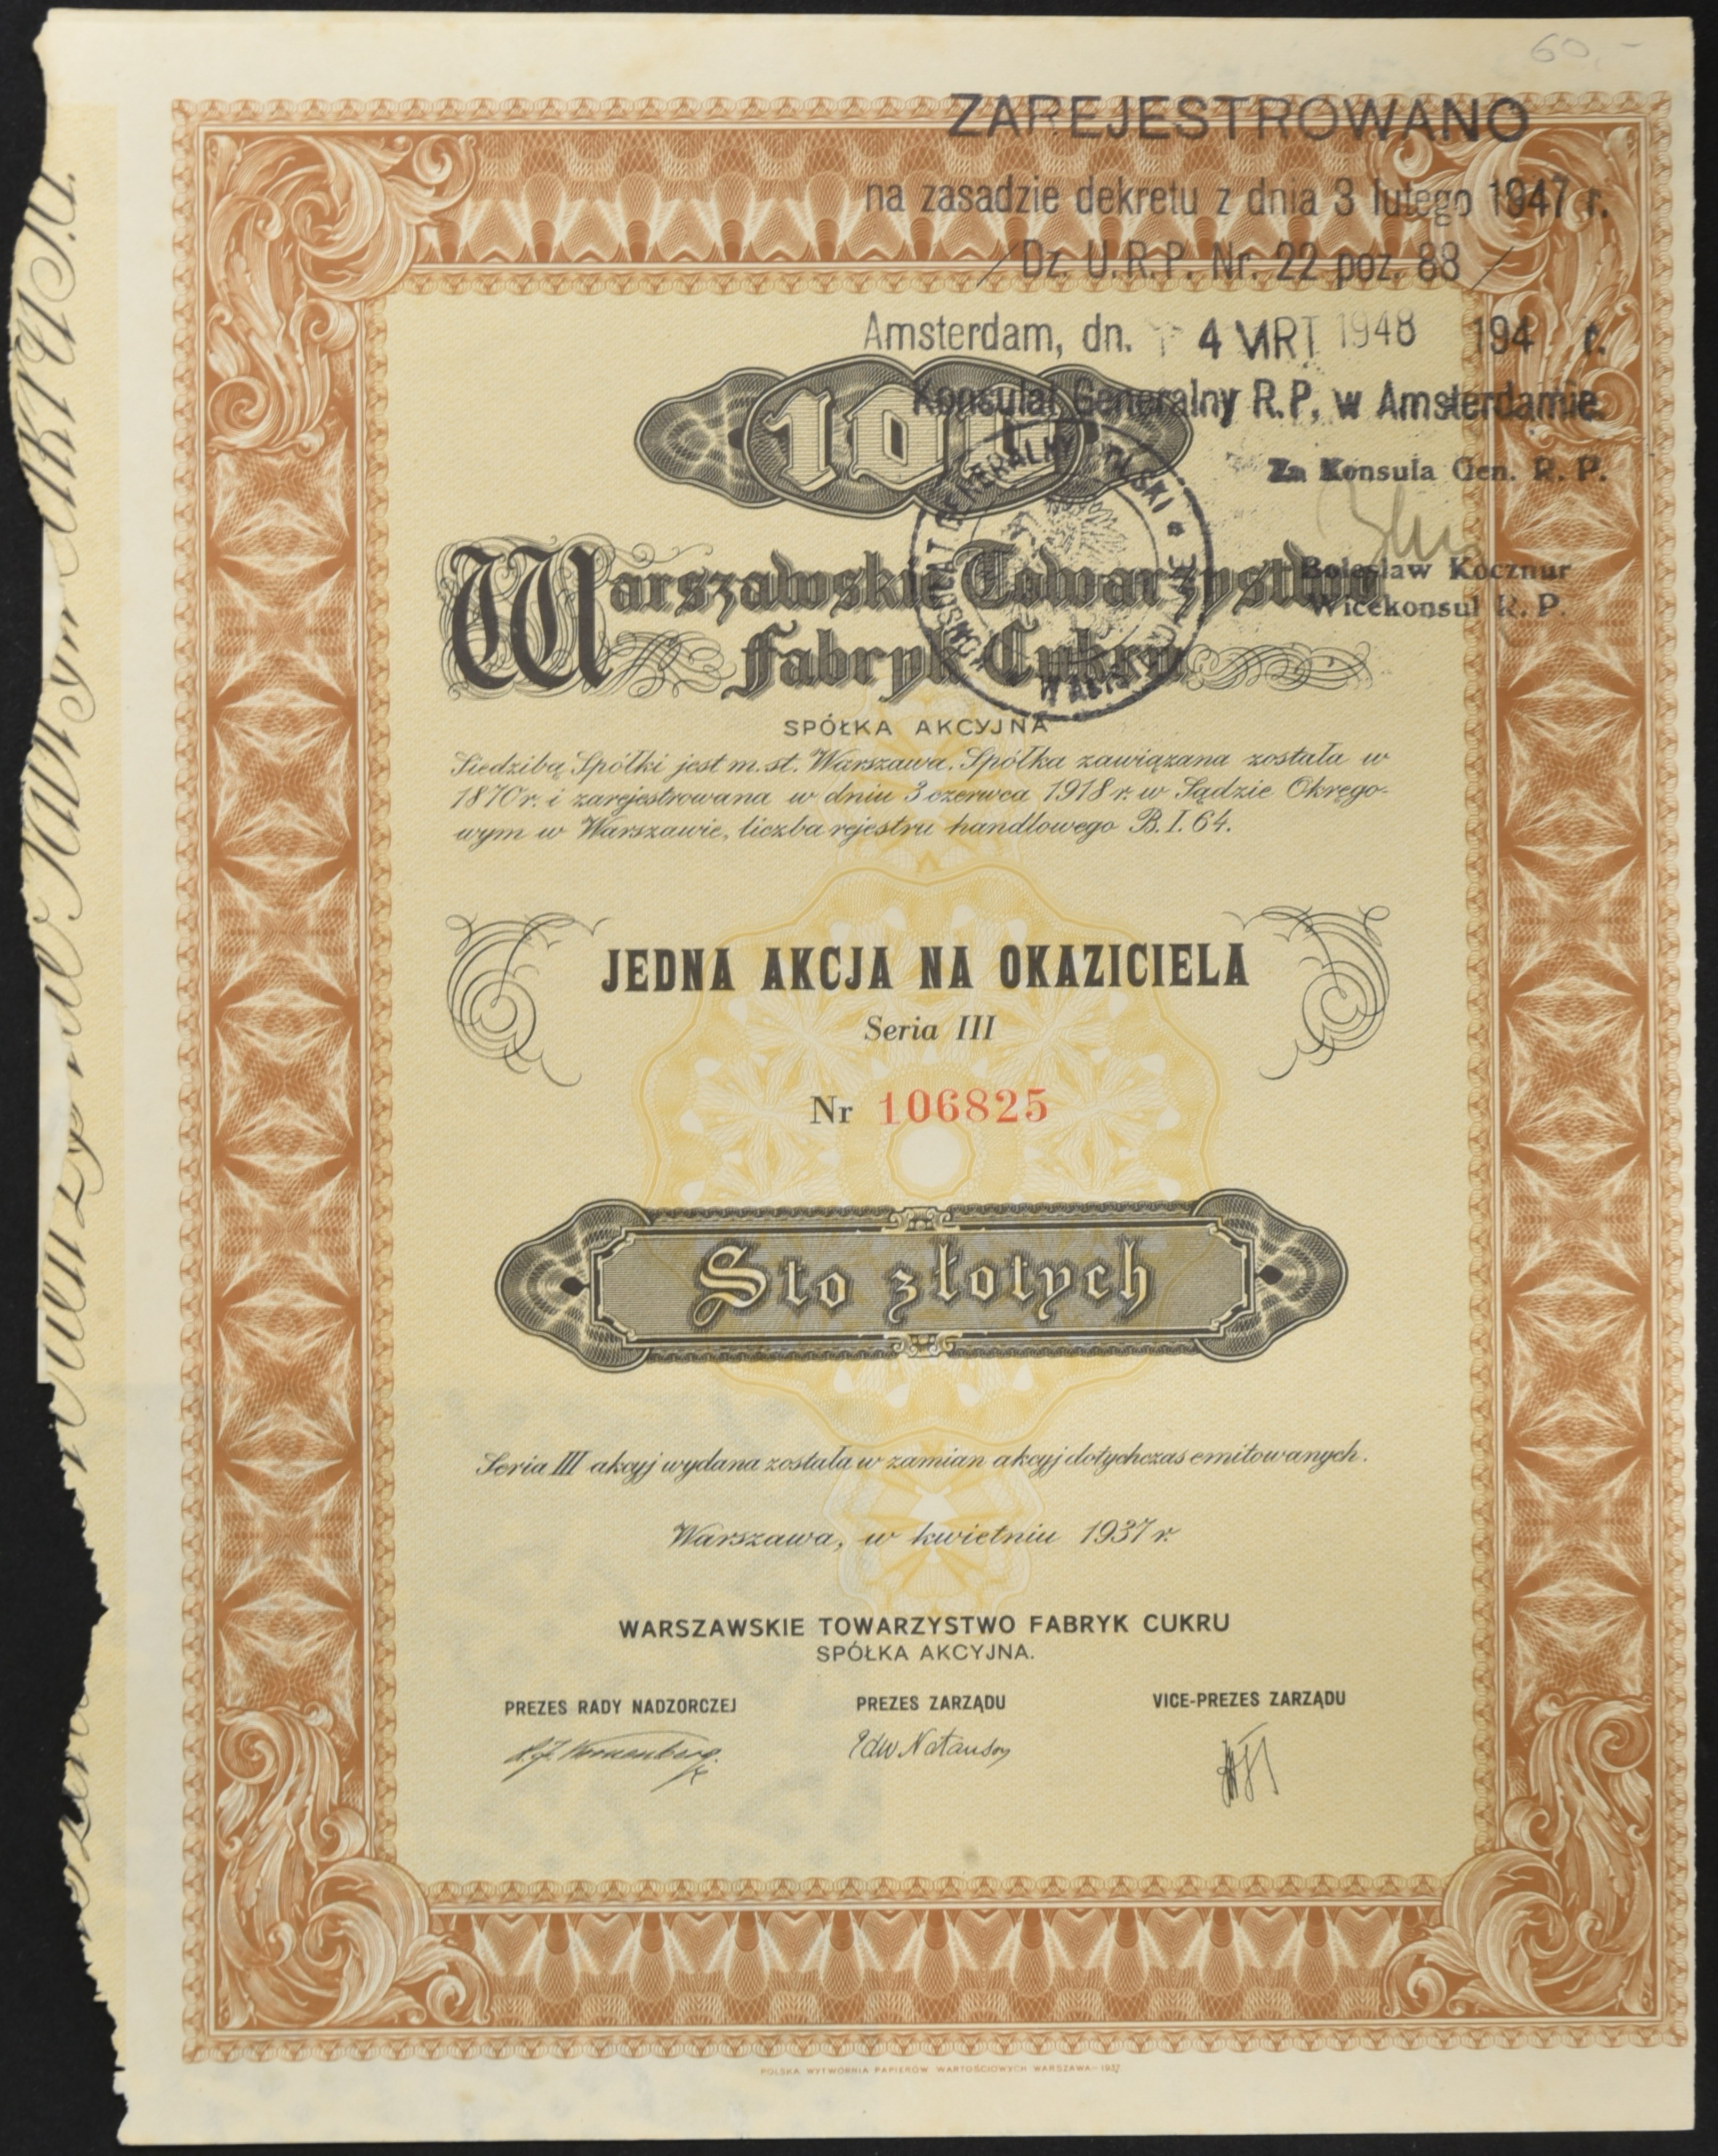 60.-
ZAREJESTROWANO
na zasadzie dekretu z dnia 3 lutego 1947 r.
/ Dz. U.R.P. Nr. 22 poz. 88 /
Amsterdam, dn. 4 MRT 1948 194 r.
Konsulat Generalny R.P. w Amsterdamie.
100
Za Konsula Gen. R. P.
Bolesław Kocznur
Wicekonsul R. P.
Warszawskie Towarzystwo
Fabryk Cukru
SPÓŁKA AKCYJNA
Siedzibą Spółki jest m. st. Warszawa. Spółka zawiązana została w
1870 r. i zarejestrowana w dniu 3 czerwca 1918 r. w Sądzie Okręgo-
wym w Warszawie, liczba rejestru handlowego B. I. 64.
JEDNA AKCJA NA OKAZICIELA
Seria III
Nr 106825
Sto złotych
Seria III akcyj wydana została w zamian akcyj dotychczas emitowanych.
Warszawa, w kwietniu 1937 r.
WARSZAWSKIE TOWARZYSTWO FABRYK CUKRU
SPÓŁKA AKCYJNA.
PREZES RADY NADZORCZEJ PREZES ZARZĄDU VICE-PREZES ZARZĄDU
Edw Natanson
POLSKA WYTWÓRNIA PAPIERÓW WARTOŚCIOWYCH WARSZAWA-1937